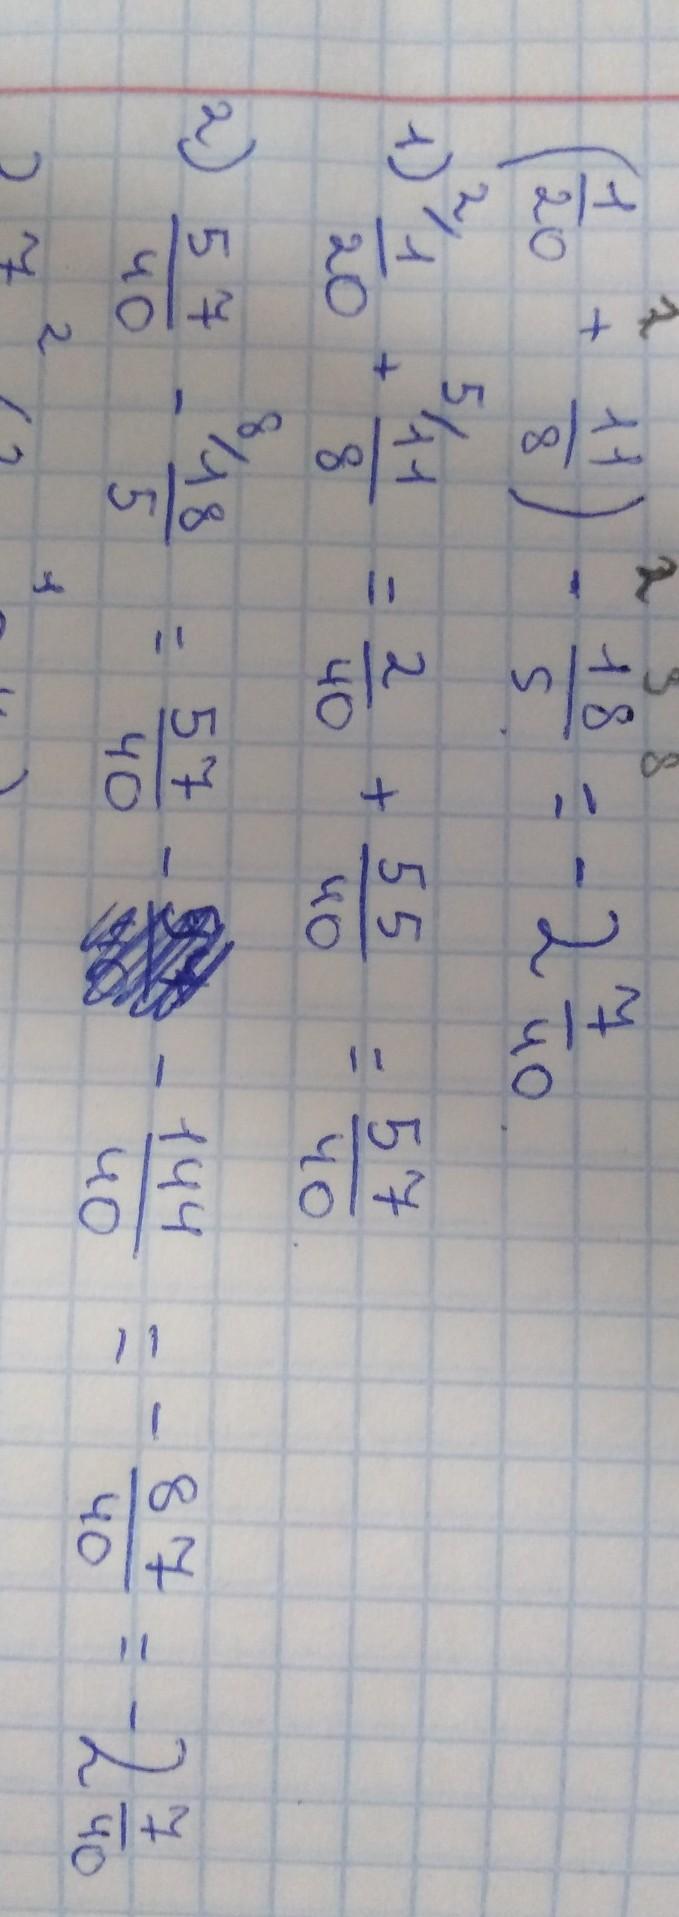 2 2 3 8
(1/20 + 11/8) - 18/5 = - 2 7/40
1) ²⁄ 1/20 + ⁵⁄ 11/8 = 2/40 + 55/40 = 57/40
2) 57/40 - ⁸⁄ 18/5 = 57/40 - - 144/40 = - 87/40 = - 2 7/40
) 7 2 1